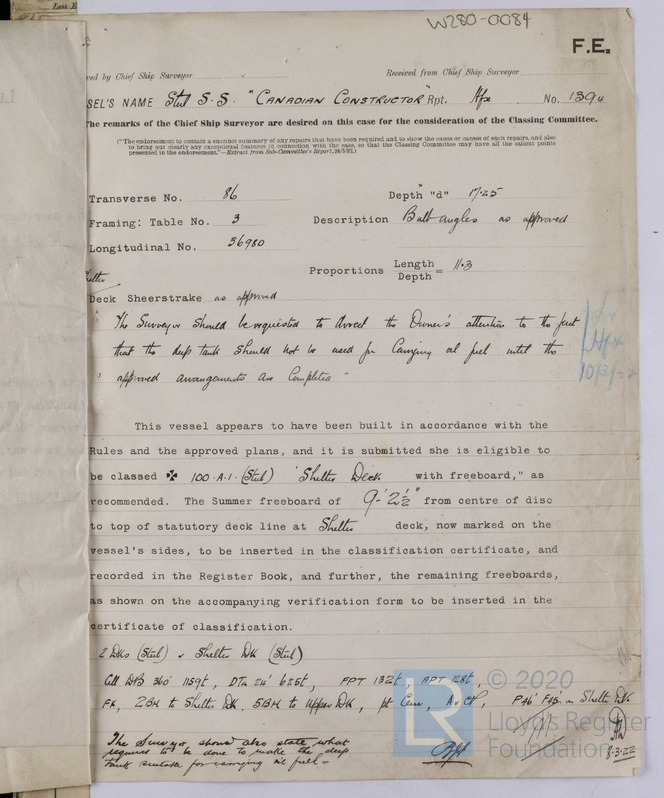 W280-0084
F.E.
ved by Chief Ship Surveyor
Received from Chief Ship Surveyor
SEL'S NAME Steel S.S. "CANADIAN CONSTRUCTOR" Rpt. Hfx No. 1394
The remarks of the Chief Ship Surveyor are desired on this case for the consideration of the Classing Committee.
("The endorsement to contain a succinct summary of any repairs that have been required and to show the cause or causes of such repairs, and also
to bring out clearly any exceptional features in connection with the case, so that the Classing Committee may have all the salient points
presented in the endorsement."—Extract from Sub-Committee's Report, 24/5/92.)
Transverse No. 86
Depth "d" 17.25
Framing: Table No. 3
Description Bulb angles as approved
Longitudinal No. 36980
Proportions Length
Depth = 11.3
Shelter
Deck Sheerstrake as approved
"The Surveyor should be requested to direct the Owner's attention to the fact
that the deep tank should not be used for carrying oil fuel until the
approved arrangements are completed"
Hfx
10/3/22
This vessel appears to have been built in accordance with the
Rules and the approved plans, and it is submitted she is eligible to
be classed ✠ 100.A.1. (Steel) "Shelter Deck with freeboard," as
recommended. The Summer freeboard of 9'-2½" from centre of disc
to top of statutory deck line at Shelter deck, now marked on the
vessel's sides, to be inserted in the classification certificate, and
recorded in the Register Book, and further, the remaining freeboards,
as shown on the accompanying verification form to be inserted in the
certificate of classification.
2 Dks (Steel) & Shelter Dk (Steel)
Cell DB 360' 1159t, DTa 24' 625t, FPT 132t, APT 128t,
FK, 2BH to Shelter Dk, 5BH to Upper Dk, pt Cem, A & CP, P46' F43' on Shelter Dk
The Surveyor should also state what
requires to be done to make the deep
tank suitable for carrying oil fuel.
8.3.22
© 2020
LR
Lloyd's Register
Foundation